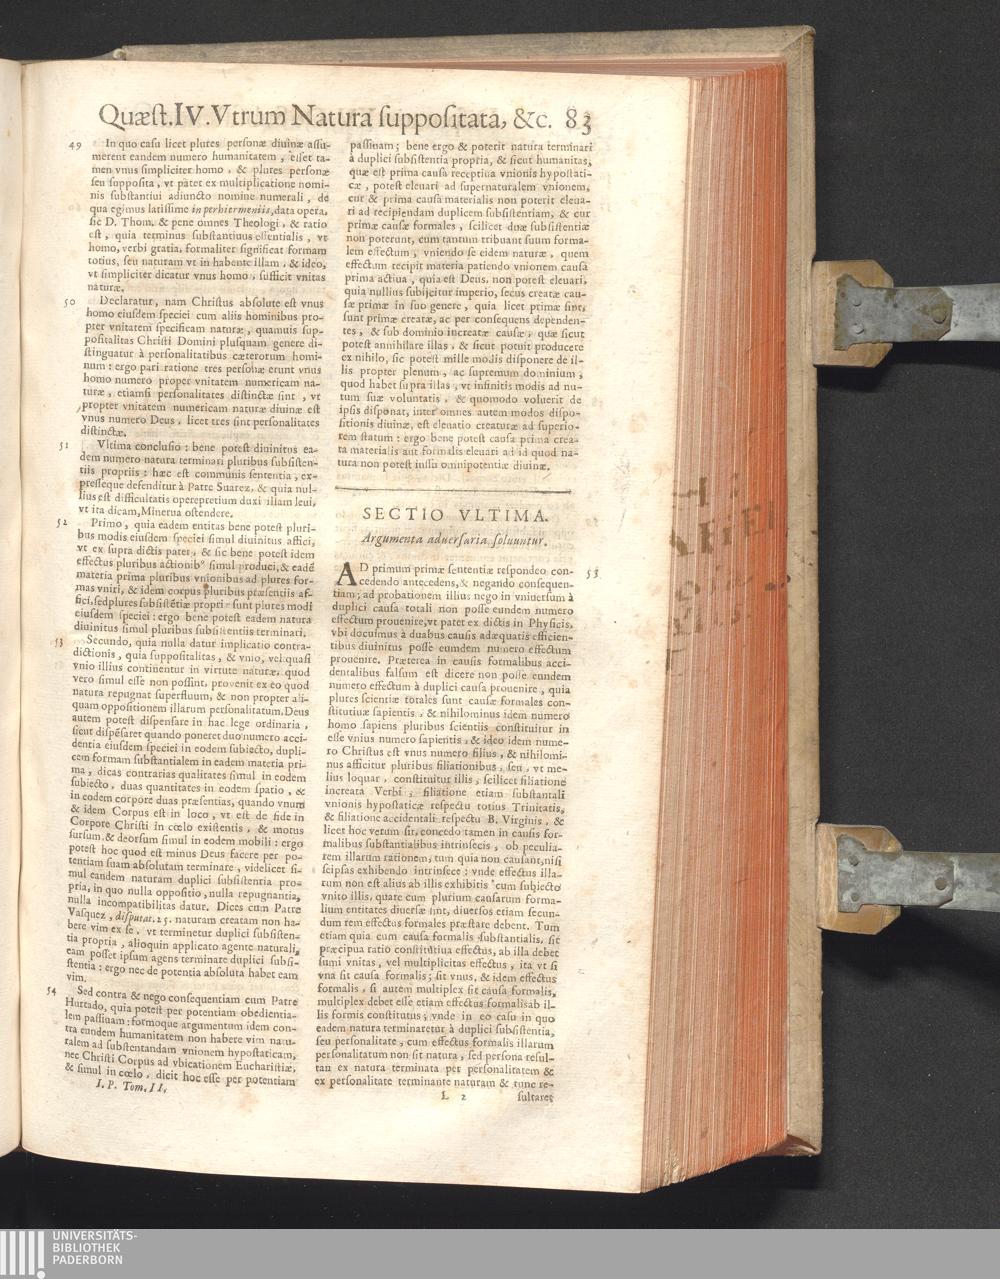 Quæſt.IV.Vtrum Natura ſuppoſitata, &c. 83
49 In quo caſu licet plures perſonæ diuinæ aſſu-
merent eandem numero humanitatem, eſſet ta-
men vnus ſimpliciter homo, & plures perſonæ
ſeu ſuppoſita, vt patet ex multiplicatione nomi-
nis ſubſtantiui adiuncto nomine numerali, de
qua egimus latiſſime in perhiermeniis, data opera,
ſic D. Thom. & pene omnes Theologi, & ratio
eſt, quia terminus ſubſtantiuus eſſentialis, vt
homo, verbi gratia, formaliter ſignificat formam
totius, ſeu naturam vt in habente illam, & ideo,
vt ſimpliciter dicatur vnus homo, ſufficit vnitas
naturæ.
50 Declaratur, nam Chriſtus abſolute eſt vnus
homo eiuſdem ſpeciei cum aliis hominibus pro-
pter vnitatem ſpecificam naturæ, quamuis ſup-
poſitalitas Chriſti Domini pluſquam genere di-
ſtinguatur à perſonalitatibus cæterorum homi-
num : ergo pari ratione tres perſonæ erunt vnus
homo numero proper vnitatem numericam na-
turæ, etiamſi perſonalitates diſtinctæ ſint, vt
propter vnitatem numericam naturæ diuinæ eſt
vnus numero Deus, licet tres ſint perſonalitates
diſtinctæ.
51 Vltima concluſio : bene poteſt diuinitus ea-
dem numero natura terminari pluribus ſubſiſten-
tiis propriis : hæc eſt communis ſententia, ex-
preſſeque defenditur à Patre Suarez, & quia nul-
lius eſt difficultatis operepretium duxi illam leui,
vt ita dicam, Minerua oſtendere.
52 Primo, quia eadem entitas bene poteſt pluri-
bus modis eiuſdem ſpeciei ſimul diuinitus affici,
vt ex ſupra dictis patet, & ſic bene poteſt idem
effectus pluribus actionib° ſimul produci, & eadē
materia prima pluribus vnionibus ad plures for-
mas vniri, & idem corpus pluribus præſentiis af-
fici, ſed plures ſubſiſtētiæ propriæ ſunt plures modi
eiuſdem ſpeciei : ergo bene poteſt eadem natura
diuinitus ſimul pluribus ſubſiſtentiis terminari.
53 Secundo, quia nulla datur implicatio contra-
dictionis, quia ſuppoſitalitas, & vnio, vel quaſi
vnio illius continentur in virtute naturæ, quod
vero ſimul eſſe non poſſint, prouenit ex eo quod
natura repugnat ſuperfluum, & non propter ali-
quam oppoſitionem illarum perſonalitatum. Deus
autem poteſt diſpenſare in hac lege ordinaria,
ſicut diſpēſaret quando poneret duo numero acci-
dentia eiuſdem ſpeciei in eodem ſubiecto, dupli-
cem formam ſubſtantialem in eadem materia pri-
ma, dicas contrarias qualitates ſimul in eodem
ſubiecto, duas quantitates in eodem ſpatio, &
in eodem corpore duas præſentias, quando vnum
& idem Corpus eſt in loco, vt eſt de fide in
Corpore Chriſti in cœlo exiſtentis, & motus
ſurſum, & deorſum ſimul in eodem mobili : ergo
poteſt hoc quod eſt minus Deus facere per po-
tentiam ſuam abſolutam terminare, videlicet ſi-
mul eandem naturam duplici ſubſiſtentia pro-
pria, in quo nulla oppoſitio, nulla repugnantia,
nulla incompatibilitas datur. Dices cum Patre
Vaſquez, diſputat. 25. naturam creatam non ha-
bere vim ex ſe, vt terminetur duplici ſubſiſten-
tia propria, alioquin applicato agente naturali,
eam poſſet ipſum agens terminare duplici ſubſi-
ſtentia : ergo nec de potentia abſoluta habet eam
vim.
54 Sed contra & nego conſequentiam cum Patre
Hurtado, quia poteſt per potentiam obedientia-
lem paſſiuam : formoque argumentum idem con-
tra eundem humanitatem non habere vim natu-
ralem ad ſubſtentandam vnionem hypoſtaticam,
nec Chriſti Corpus ad vbicationem Euchariſtiæ,
& ſimul in cœlo, dicit hoc eſſe per potentiam
I. P. Tom. II,
paſſiuam ; bene ergo & poterit natura terminari
à duplici ſubſiſtentia propria, & ſicut humanitas,
quæ eſt prima cauſa receptiua vnionis hypoſtati-
cæ, poteſt eleuari ad ſupernaturalem vnionem,
cur & prima cauſa materialis non poterit eleua-
ri ad recipiendam duplicem ſubſiſtentiam, & cur
primæ cauſæ formales, ſcilicet duæ ſubſiſtentiæ
non poterunt, cum tantum tribuant ſuum forma-
lem effectum, vniendo ſe eidem naturæ, quem
effectum recipit materia patiendo vnionem cauſa
prima actiua, quia eſt Deus, non poteſt eleuari,
quia nullius ſubijcitur imperio, ſecus creatæ cau-
ſæ primæ in ſuo genere, quia licet primæ ſint,
ſunt primæ creatæ, ac per conſequens dependen-
tes, & ſub dominio increatæ cauſæ, quæ ſicut
poteſt annihilare illas, & ſicut potuit producere
ex nihilo, ſic poteſt mille modis diſponere de il-
lis propter plenum, ac ſupremum dominium,
quod habet ſupra illas, vt infinitis modis ad nu-
tum ſuæ voluntatis, & quomodo voluerit de
ipſis diſponat, inter omnes autem modos diſpo-
ſitionis diuinæ, eſt eleuatio creaturæ ad ſuperio-
rem ſtatum : ergo bene poteſt cauſa prima crea-
ta materialis aut formalis eleuari ad id quod na-
tura non poteſt iuſſu omnipotentiæ diuinæ.
SECTIO VLTIMA.
Argumenta aduerſaria ſoluuntur.
AD primum primæ ſententiæ reſpondeo con- 53
cedendo antecedens, & negando conſequen-
tiam ; ad probationem illius nego in vniuerſum à
duplici cauſa totali non poſſe eundem numero
effectum prouenire, vt patet ex dictis in Phyſicis,
vbi docuimus à duabus cauſis adæquatis efficien-
tibus diuinitus poſſe eumdem numero effectum
prouenire. Præterea in cauſis formalibus acci-
dentalibus falſum eſt dicere non poſſe eundem
numero effectum à duplici cauſa prouenire, quia
plures ſcientiæ totales ſunt cauſæ formales con-
ſtitutiuæ ſapientis, & nihilominus idem numero
homo ſapiens pluribus ſcientiis conſtituitur in
eſſe vnius numero ſapientis, & ideo idem nume-
ro Chriſtus eſt vnus numero filius, & nihilomi-
nus afficitur pluribus filiationibus, ſeu, vt me-
lius loquar, conſtituitur illis, ſcilicet filiatione
increata Verbi, filiatione etiam ſubſtantali
vnionis hypoſtaticæ reſpectu totius Trinitatis,
& filiatione accidentali reſpectu B. Virginis, &
licet hoc verum ſit, concedo tamen in cauſis for-
malibus ſubſtantialibus intrinſecis, ob peculia-
rem illarum rationem, tum quia non cauſant, niſi
ſeipſas exhibendo intrinſece : vnde effectus illa-
rum non eſt alius ab illis exhibitis cum ſubiecto
vnito illis, quare cum plurium cauſarum forma-
lium entitates diuerſæ ſint, diuerſos etiam ſecun-
dum rem effectus formales præſtare debent. Tum
etiam quia cum cauſa formalis ſubſtantialis, ſit
præcipua ratio conſtitutiua effectus, ab illa debet
ſumi vnitas, vel multiplicitas effectus, ita vt ſi
vna ſit cauſa formalis ; ſit vnus, & idem effectus
formalis, ſi autem multiplex ſit cauſa formalis,
multiplex debet eſſe etiam effectus formalis ab il-
lis formis conſtitutus ; vnde in eo caſu in quo
eadem natura terminaretur à duplici ſubſiſtentia,
ſeu perſonalitate, cum effectus formalis illarum
perſonalitatum non ſit natura, ſed perſona reſul-
tan ex natura terminata per perſonalitatem &
ex perſonalitate terminante naturam & tunc re-
L 2 ſultaret
UNIVERSITÄTS-
BIBLIOTHEK
PADERBORN